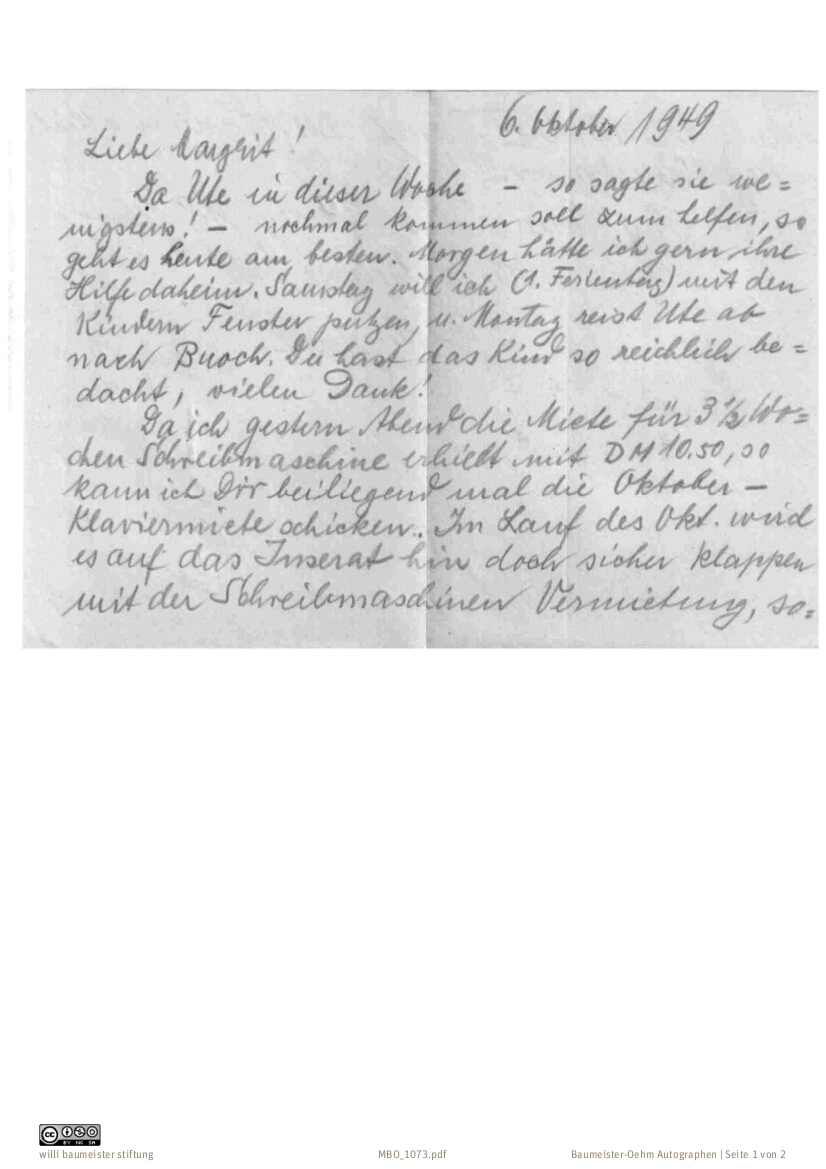 6. Oktober 1949
Liebe Margrit!
Da Ute in dieser Woche – so sagte sie we=
nigstens! – nochmal kommen soll zum helfen, so
geht es heute am besten. Morgen hätte ich gern ihre
Hilfe daheim. Samstag will ich (1. Ferientag) mit den
Kindern Fenster putzen, u. Montag reist Ute ab
nach Buoch. Du hast das Kind so reichlich be=
dacht, vielen Dank!
Da ich gestern Abend die Miete für 3 ½ Wo=
chen Schreibmaschine erhielt mit DM 10.50, so
kann ich Dir beiliegend mal die Oktober –
Klaviermiete schicken. Im Lauf des Okt. wird
es auf das Inserat hin doch sicher klappen
mit der Schreibmaschinen Vermietung, so=
CC BY NC SA
willi baumeister stiftung
MBO_1073.pdf
Baumeister-Oehm Autographen | Seite 1 von 2